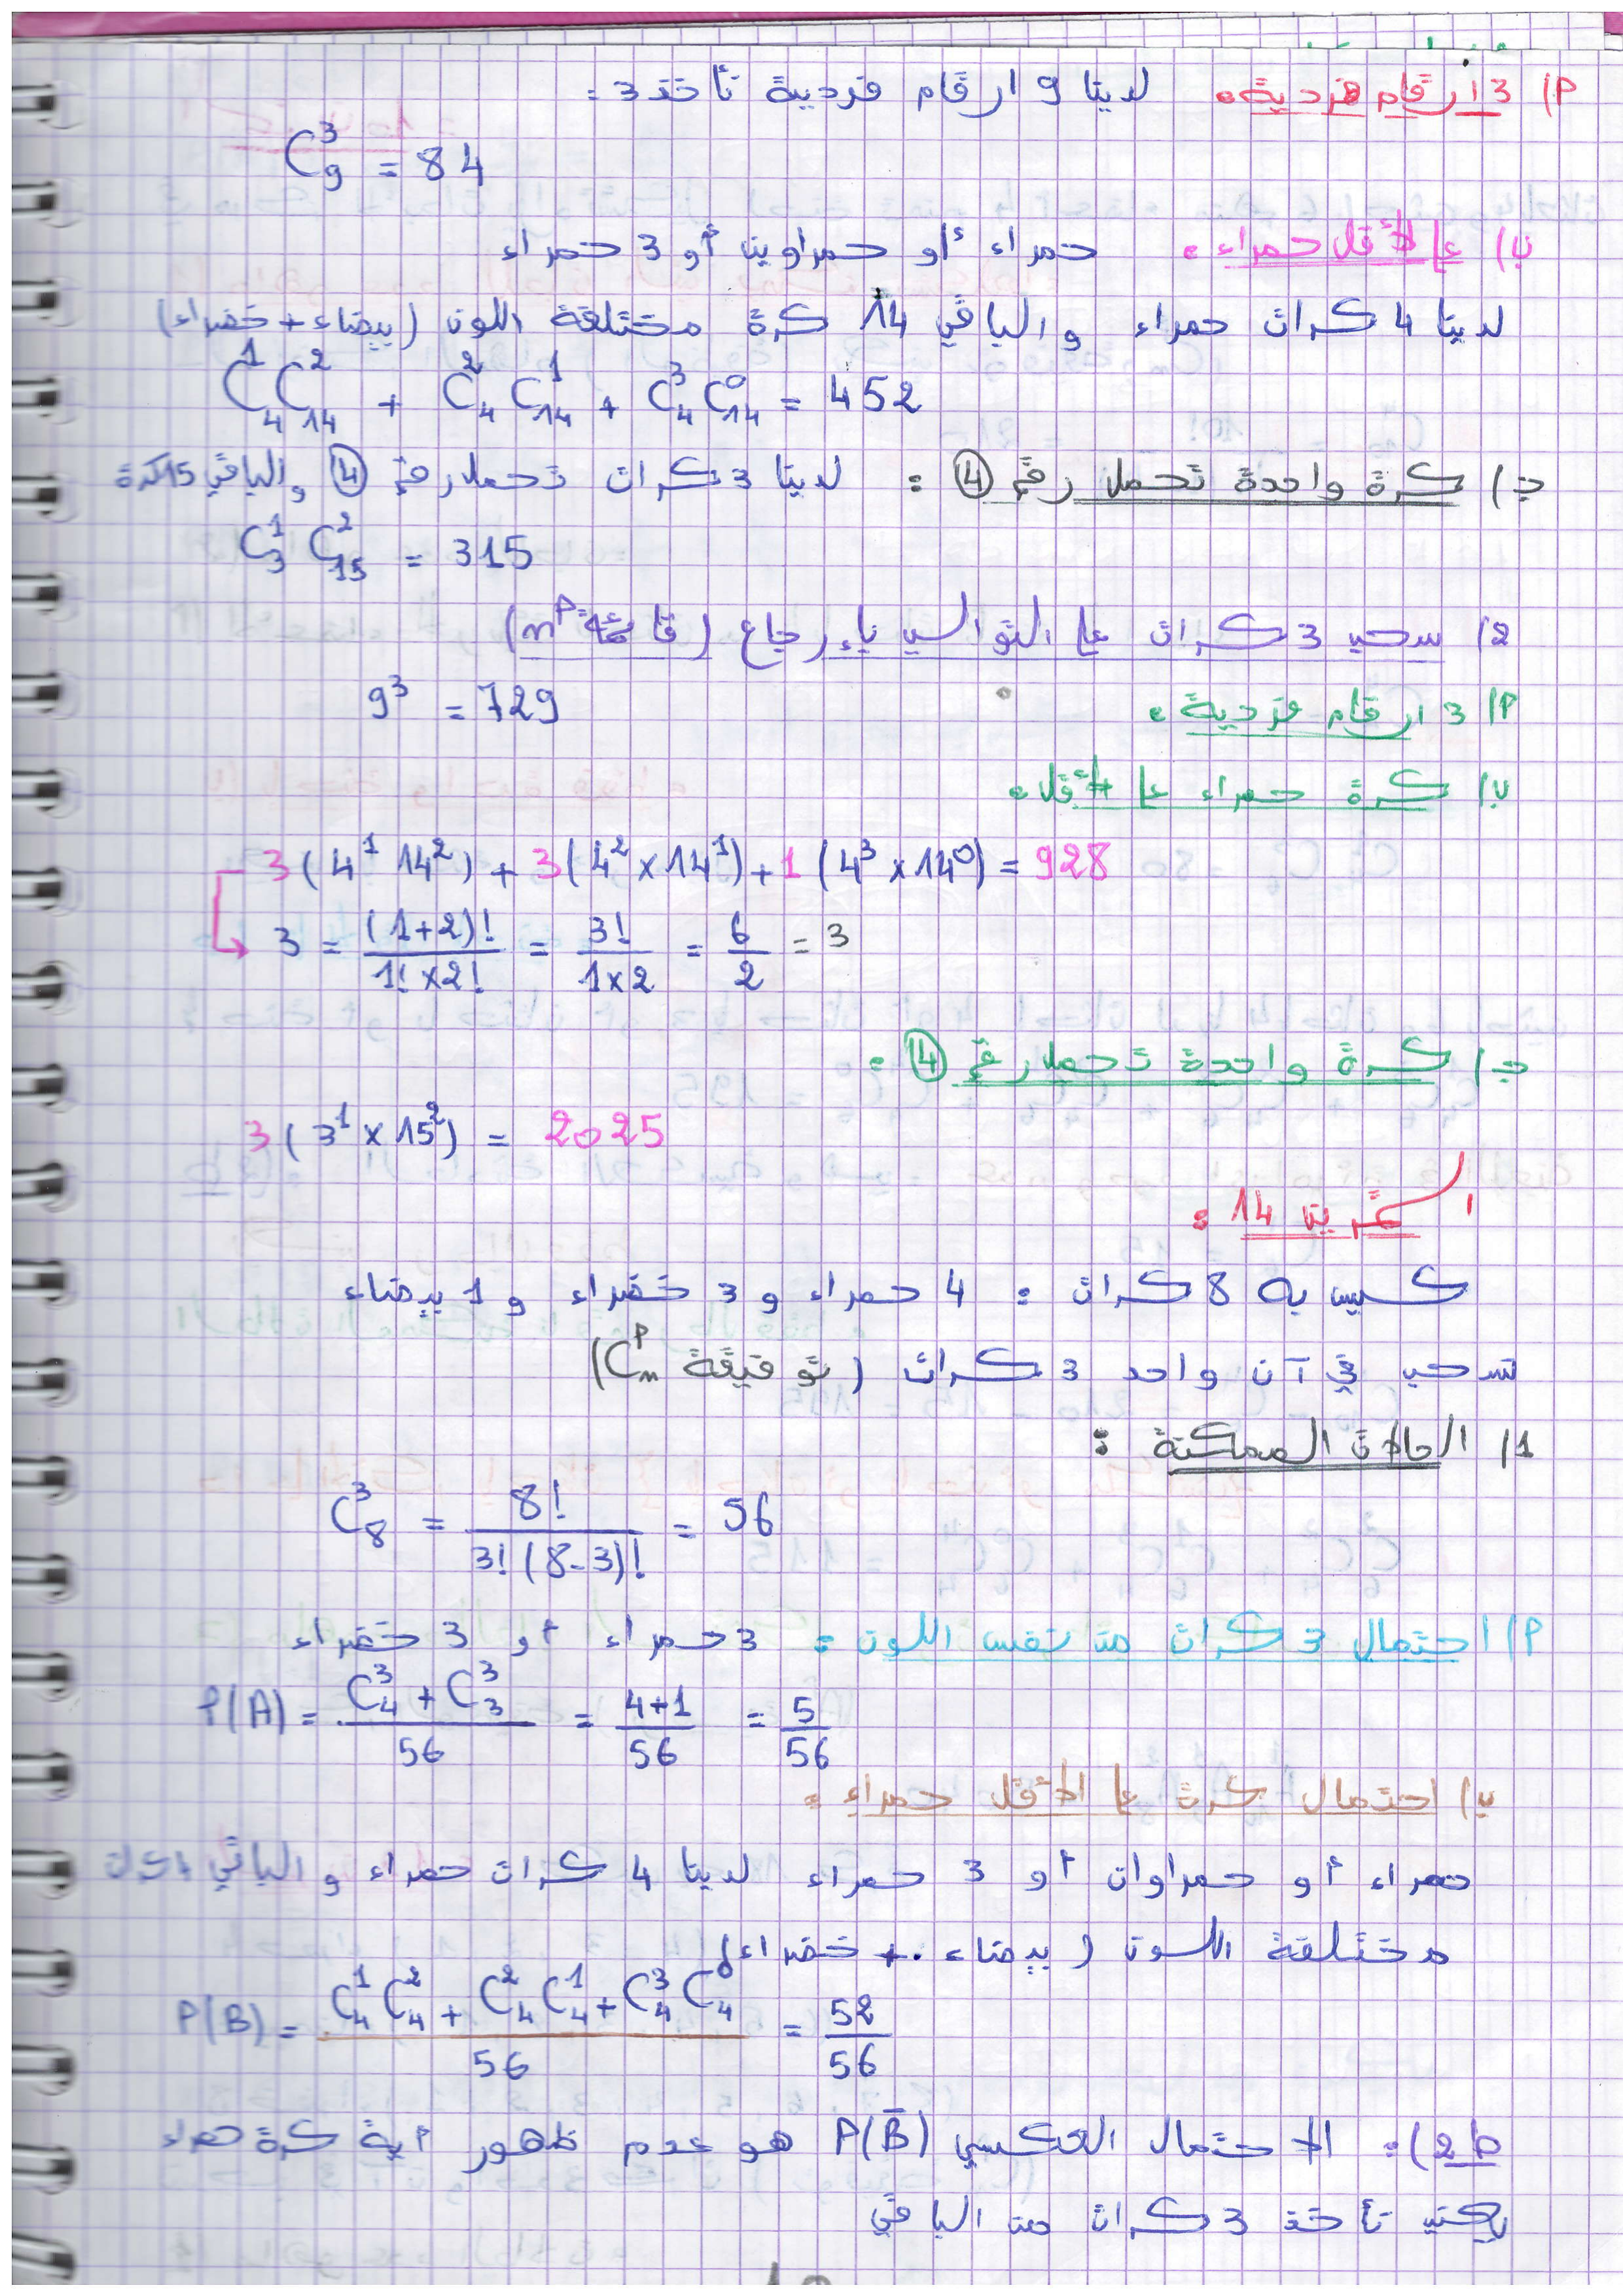 أ) 3 ارقام فردية: لدينا 9 ارقام فردية نأخذ 3:
C₉³ = 84
ب) على الأقل حمراء: حمراء أو حمراوين أو 3 حمراء
لدينا 4 كرات حمراء والباقي 14 كرة مختلفة اللون (بيضاء + خضراء)
C₄¹ C₁₄² + C₄² C₁₄¹ + C₄³ C₁₄⁰ = 452
ج) كرة واحدة تحمل رقم ④: لدينا 3 كرات تحمل رقم ④ والباقي 15 كرة
C₃¹ C₁₅² = 315
2) سحب 3 كرات على التوالي بإرجاع (قائمة nᵖ)
أ) 3 ارقام فردية:
9³ = 729
ب) كرة حمراء على الأقل:
3(4¹ 14²) + 3(4² × 14¹) + 1(4³ × 14⁰) = 928
3 = (1+2)! / 1! × 2! = 3! / 1×2 = 6/2 = 3
ج) كرة واحدة تحمل رقم ④:
3(3¹ × 15²) = 2025
التمرين 14:
كيس به 8 كرات: 4 حمراء و 3 خضراء و 1 بيضاء
نسحب في آن واحد 3 كرات (توفيقة Cₙᵖ)
1) الحالات الممكنة:
C₈³ = 8! / 3!(8-3)! = 56
أ) احتمال 3 كرات من نفس اللون: 3 حمراء أو 3 خضراء
P(A) = (C₄³ + C₃³) / 56 = (4+1) / 56 = 5/56
ب) احتمال كرة على الأقل حمراء:
حمراء أو حمراوان أو 3 حمراء لدينا 4 كرات حمراء والباقي
مختلفة اللون (بيضاء + خضراء)
P(B) = (C₄¹ C₄² + C₄² C₄¹ + C₄³ C₄⁰) / 56 = 52/56
ط2): الاحتمال العكسي P(B̄) هو عدم ظهور أية كرة حمراء
يعني نأخذ 3 كرات من الباقي